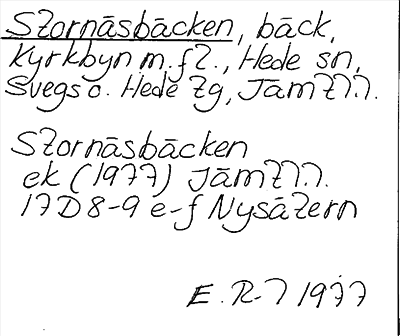 Stornäsbäcken, bäck,
Kyrkbyn m.fl., Hede sn,
Svegs o. Hede tg, Jämtl.
Stornäsbäcken
ek (1977) Jämtl.
17D 8-9 e-f Nysätern
E. R-l 1977